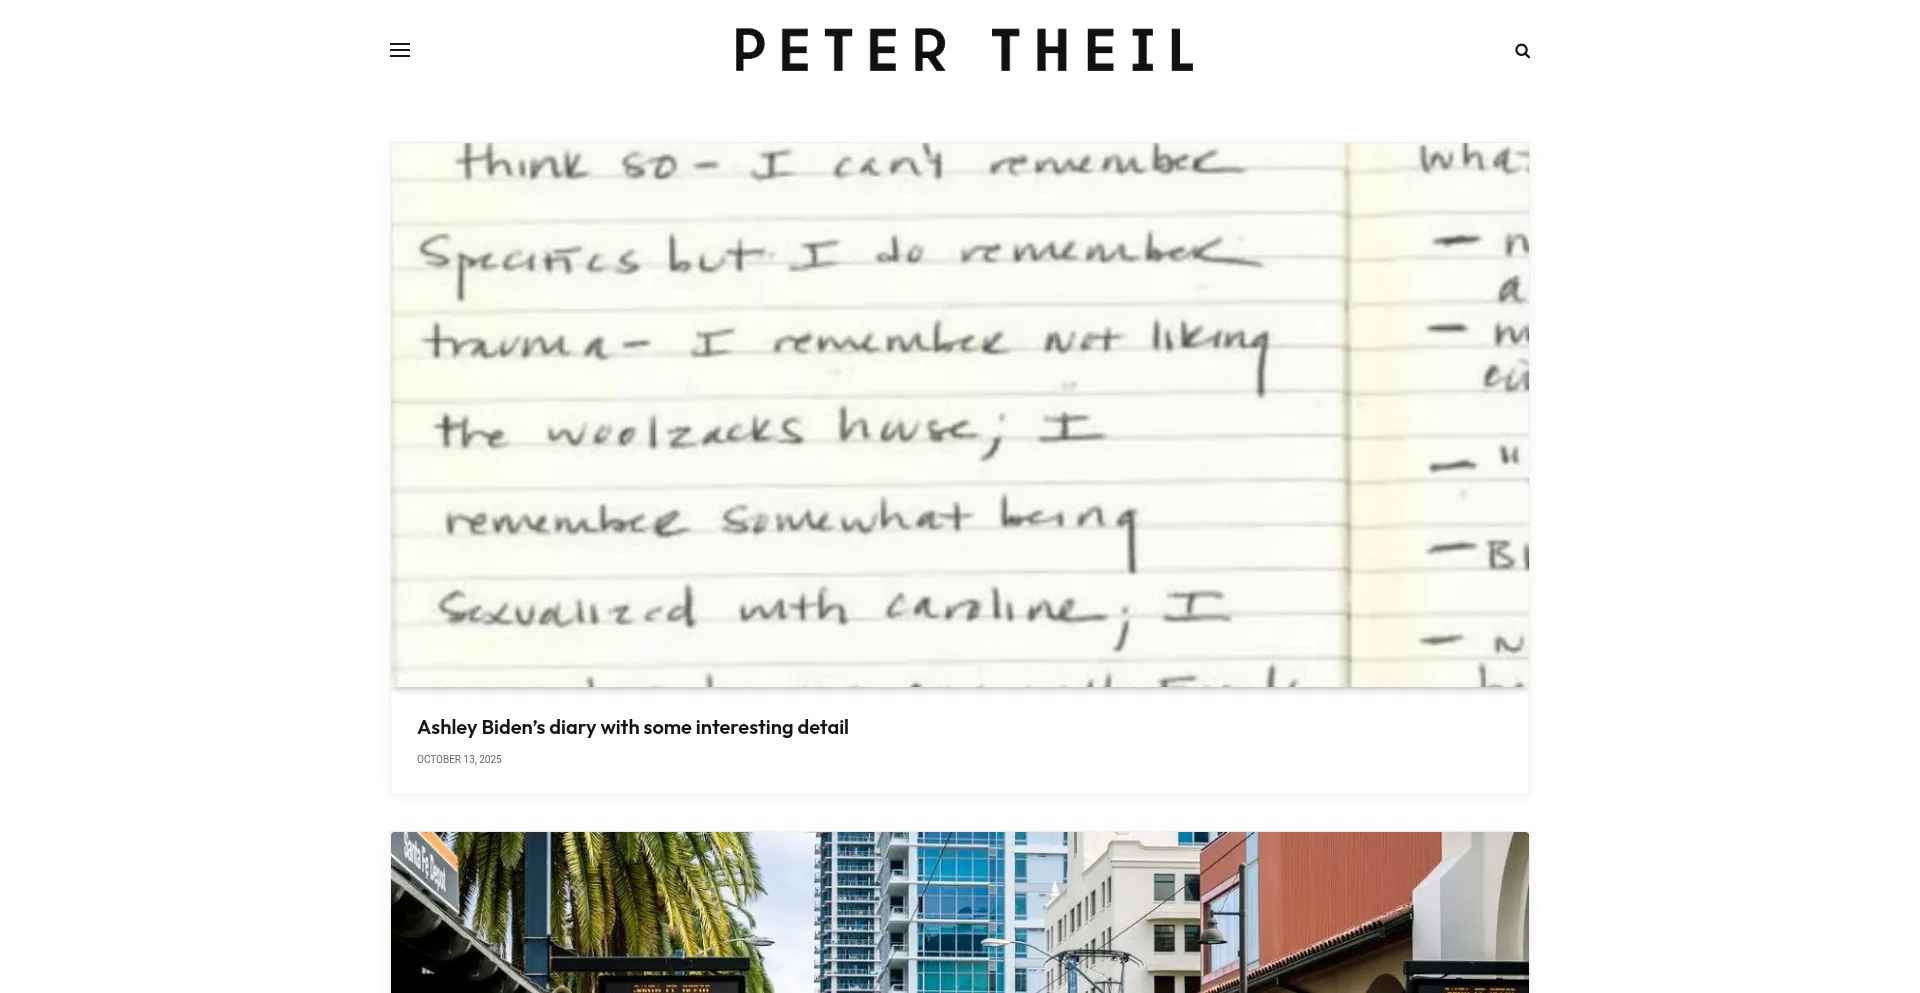 PETER THEIL
think so - I can't remember
wha
Specifics but I do remember
trauma - I remember not liking
the woolzacks house; I
remember somewhat being
sexualized with caroline; I
Ashley Biden's diary with some interesting detail
OCTOBER 13, 2025
Santa Fe Depot
SANTA FE DEPOT